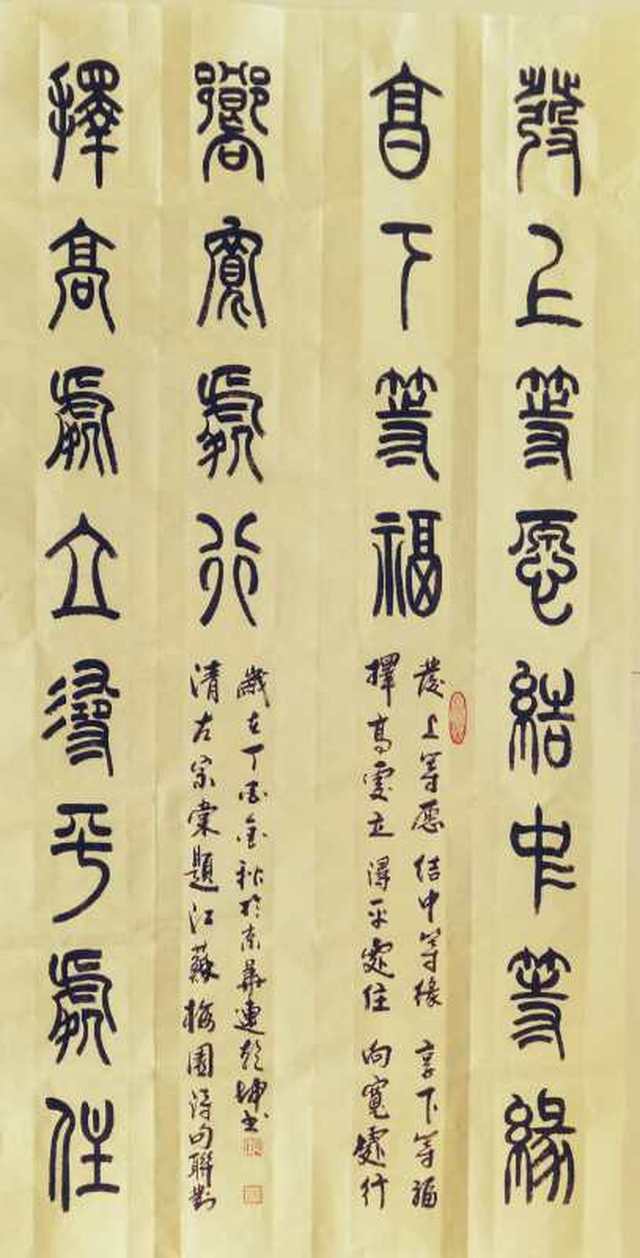 發上等愿結中等緣
享下等福
擇高處立尋平處住
嚮寬處行
發上等愿 结中等缘 享下等福
擇高處立 潯平處住 向寬處行
歲在丁酉金秋於東華連乾坤书
清左宗棠題江蘇梅園詩句聯對